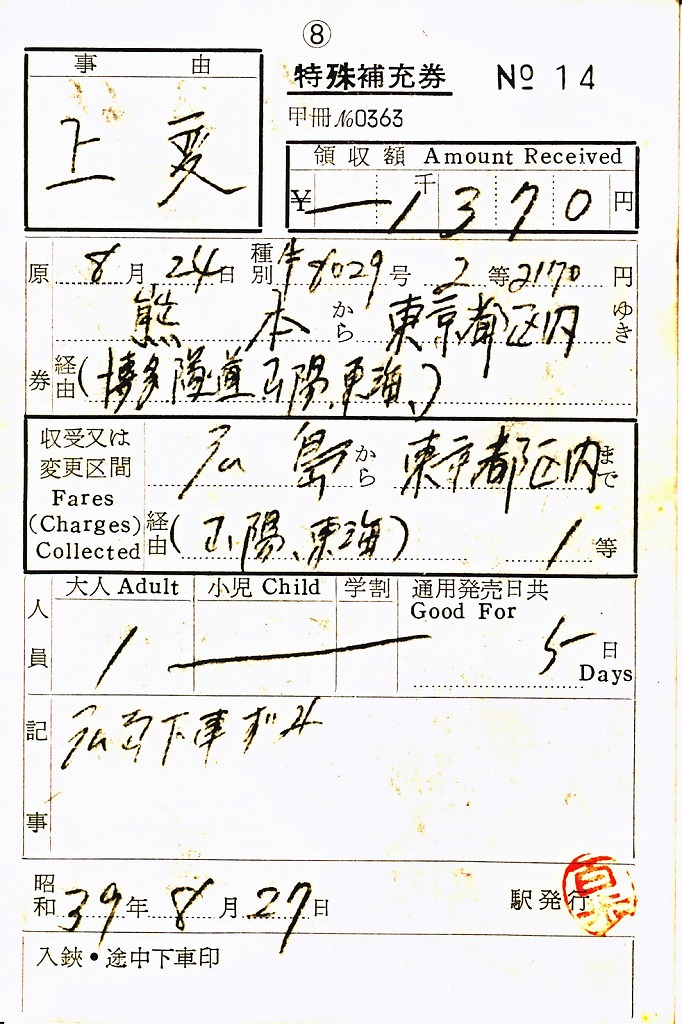 ⑧
特殊補充券 No 14
事由
上変
甲冊No0363
領収額 Amount Received
¥ー1千370円
原券 8月24日 種別 8029号 2等2170円
熊本から東京都区内ゆき
経由(博多隧道山陽、東海、)
収受又は変更区間 Fares (Charges) Collected
広島から東京都区内まで
経由(山陽、東海) 1等
人員
大人 Adult 小児 Child 学割 通用発売日共 Good For
1 5日 Days
記事
広島下車ずみ
昭和39年8月27日 駅発行
入鋏・途中下車印